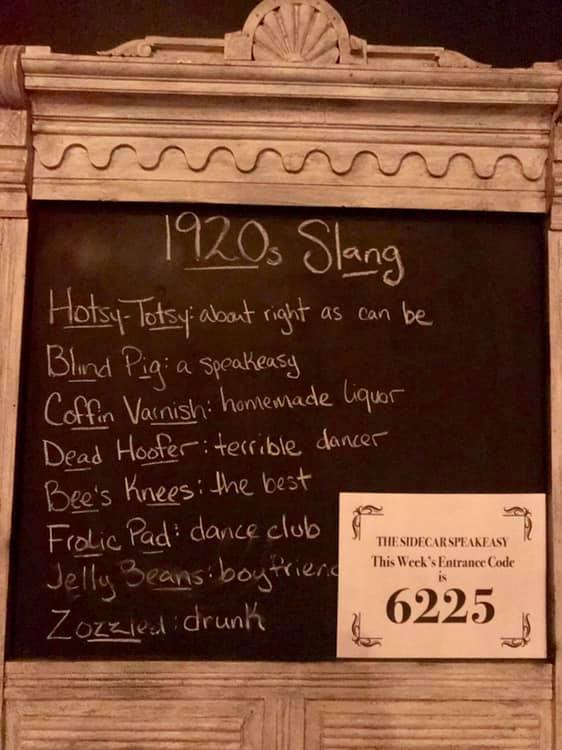 1920s Slang
Hotsy-Totsy: about right as can be
Blind Pig: a speakeasy
Coffin Varnish: homemade liquor
Dead Hoofer: terrible dancer
Bee's Knees: the best
Frolic Pad: dance club
Jelly Beans: boyfriend
Zozzled: drunk
THE SIDECAR SPEAKEASY
This Week's Entrance Code
is
6225